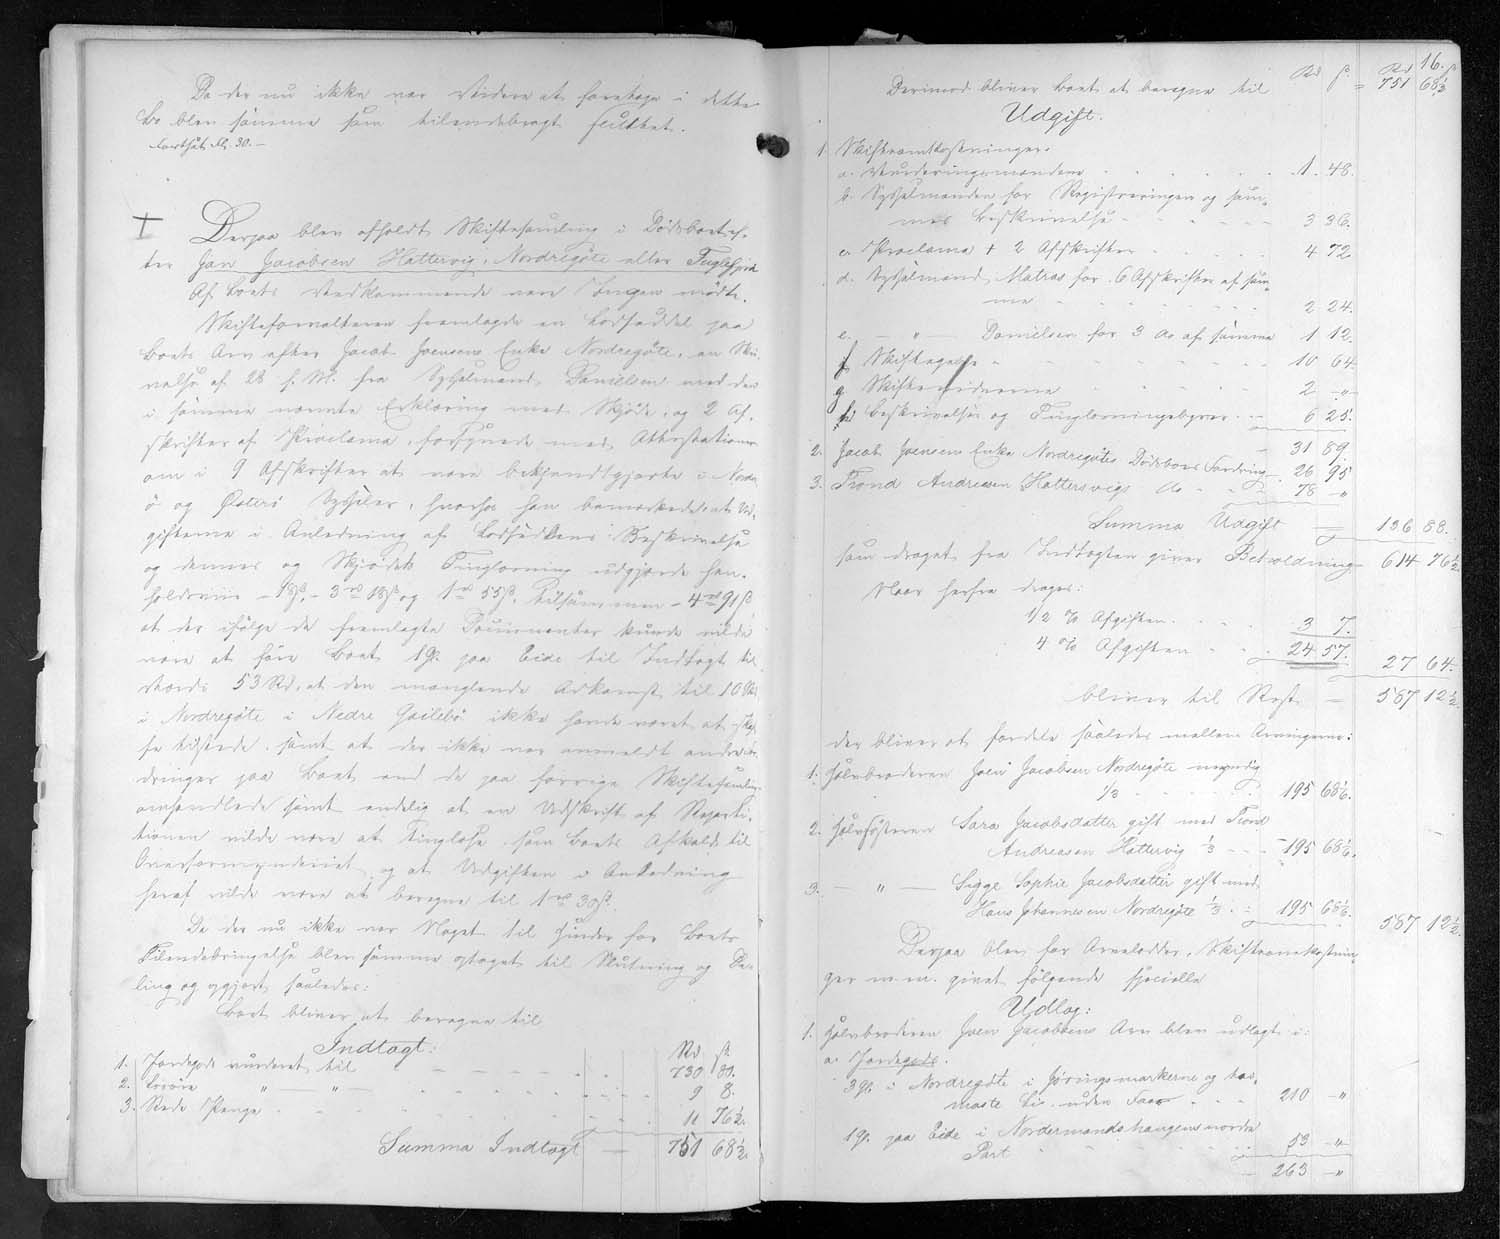 Da der nu ikke var Videre at foretage i dette
Bo blev samme som tilendebragt sluttet.
fortsat fol. 30.
Derpaa blev afholdt Skiftesamling i Dødsboet ef-
ter Jan Jacobsen Hattervig, Nordregøte eller Fuglefjord
Af Boets Vedkommende vare Ingen mødte.
Skifteforvalteren fremlagde en Lodseddel paa
Boets Arv efter Jacob Joensens Enke Nordregøte, en Skri-
velse af 28 f. M. fra Sysselmand Danielsen med den
i samme nævnte Erklæring med Skjøde, og 2 Af-
skrifter af Proclama, forsynede med Attestationer
om i 9 Afskrifter at være bekjendtgjorte i Norder-
ø og Østerø Sysseler, hvorhos han bemærkede, at Ud-
gifterne i Anledning af Lodseddelens Beskrivelse
og dennes og Skjødets Tinglæsning udgjorde hen-
holdsviis - 18ß, - 3 rd 18ß og 1 rd 55ß, tilsammen - 4 rd 91 ß
at der ifølge de fremlagte Documenter kunde vilde
være at føre Boet 1 G. paa Eide til Indtægt til
Værdi 53 Rd, at den manglende Adkomst til 10 Sk
i Nordregøte i Nedre Gailebø ikke havde været at skaf-
fe tilstede, samt at der ikke var anmeldt andre For-
dringer paa Boet end de paa forrige Skiftesamling
omhandlede samt endelig at en Udskrift af Reparti-
tionen vilde være at tinglæse som Boets Adkomst til
Overformynderiet og at Udgiften i Anledning
heraf vilde være at beregne til 1 rd 30ß.
Da der nu ikke var Noget til Hinder for Boets
Tilendebringelse blev samme optaget til Slutning og De-
ling og opgjort saaledes:
Boet bliver at beregne til
Indtægt:
Rd ß
1. Jordegods vurderet til 730 80.
2. Løsøre " " 9 8.
3. Rede Penge 11 76½.
Summa Indtægt 751 68½
16.
Rd ß Rd ß
Derimod bliver Boet at beregne til = 751 68½
Udgift.
1. Skifteomkostninger:
a. Vurderingsmændene 1 48.
b. Sysselmanden for Registreringen og sam-
mes Beskrivelse 3 36.
c. Proclama + 2 Afskrifter 4 72
d. Sysselmand Matras for 6 Afskrifter af sam-
me 2 24.
e. — " — Danielsen for 3 do af samme 1 12.
f. Skiftegebyr 10 64
g. Skiftevidnerne 2 "
h. Beskrivelses og Tinglæsningsgebyrer 6 25.
31 89.
2. Jacob Joensens Enke Nordregøtes Dødsboes Fordring 26 95
3. Trond Andreasen Hattersvigs do 78 "
Summa Udgift = 136 88.
som draget fra Indtægten giver Beholdning 614 76½
Naar herfra drages:
1/2 % Afgiften 3 7.
4 % Afgiften 24 57.
27 64.
bliver til Rest — 587 12½.
der bliver at fordele saaledes mellem Arvingerne:
1. Halvbroderen Joen Jacobsen Nordregøte myndig
1/3 195 68⅙.
2. Halvsøsteren Sara Jacobsdatter gift med Trond
Andreasen Hattervig 1/3 195 68⅙.
3. — " — Sigge Sophie Jacobsdatter gift med
Hans Johannesen Nordregøte 1/3 195 68⅙.
587 12½.
Derpaa blev for Arvelodder, Skifteomkostnin-
ger m. m. givet følgende specielle
Udlæg:
1. Halvbroderen Joen Jacobsens Arv blev udlagt i:
a. Jordegods.
3 G. i Nordregøte i
210 "
1 G. paa Eide i Nordermandshaugens nordre
Part 53 "
263 "